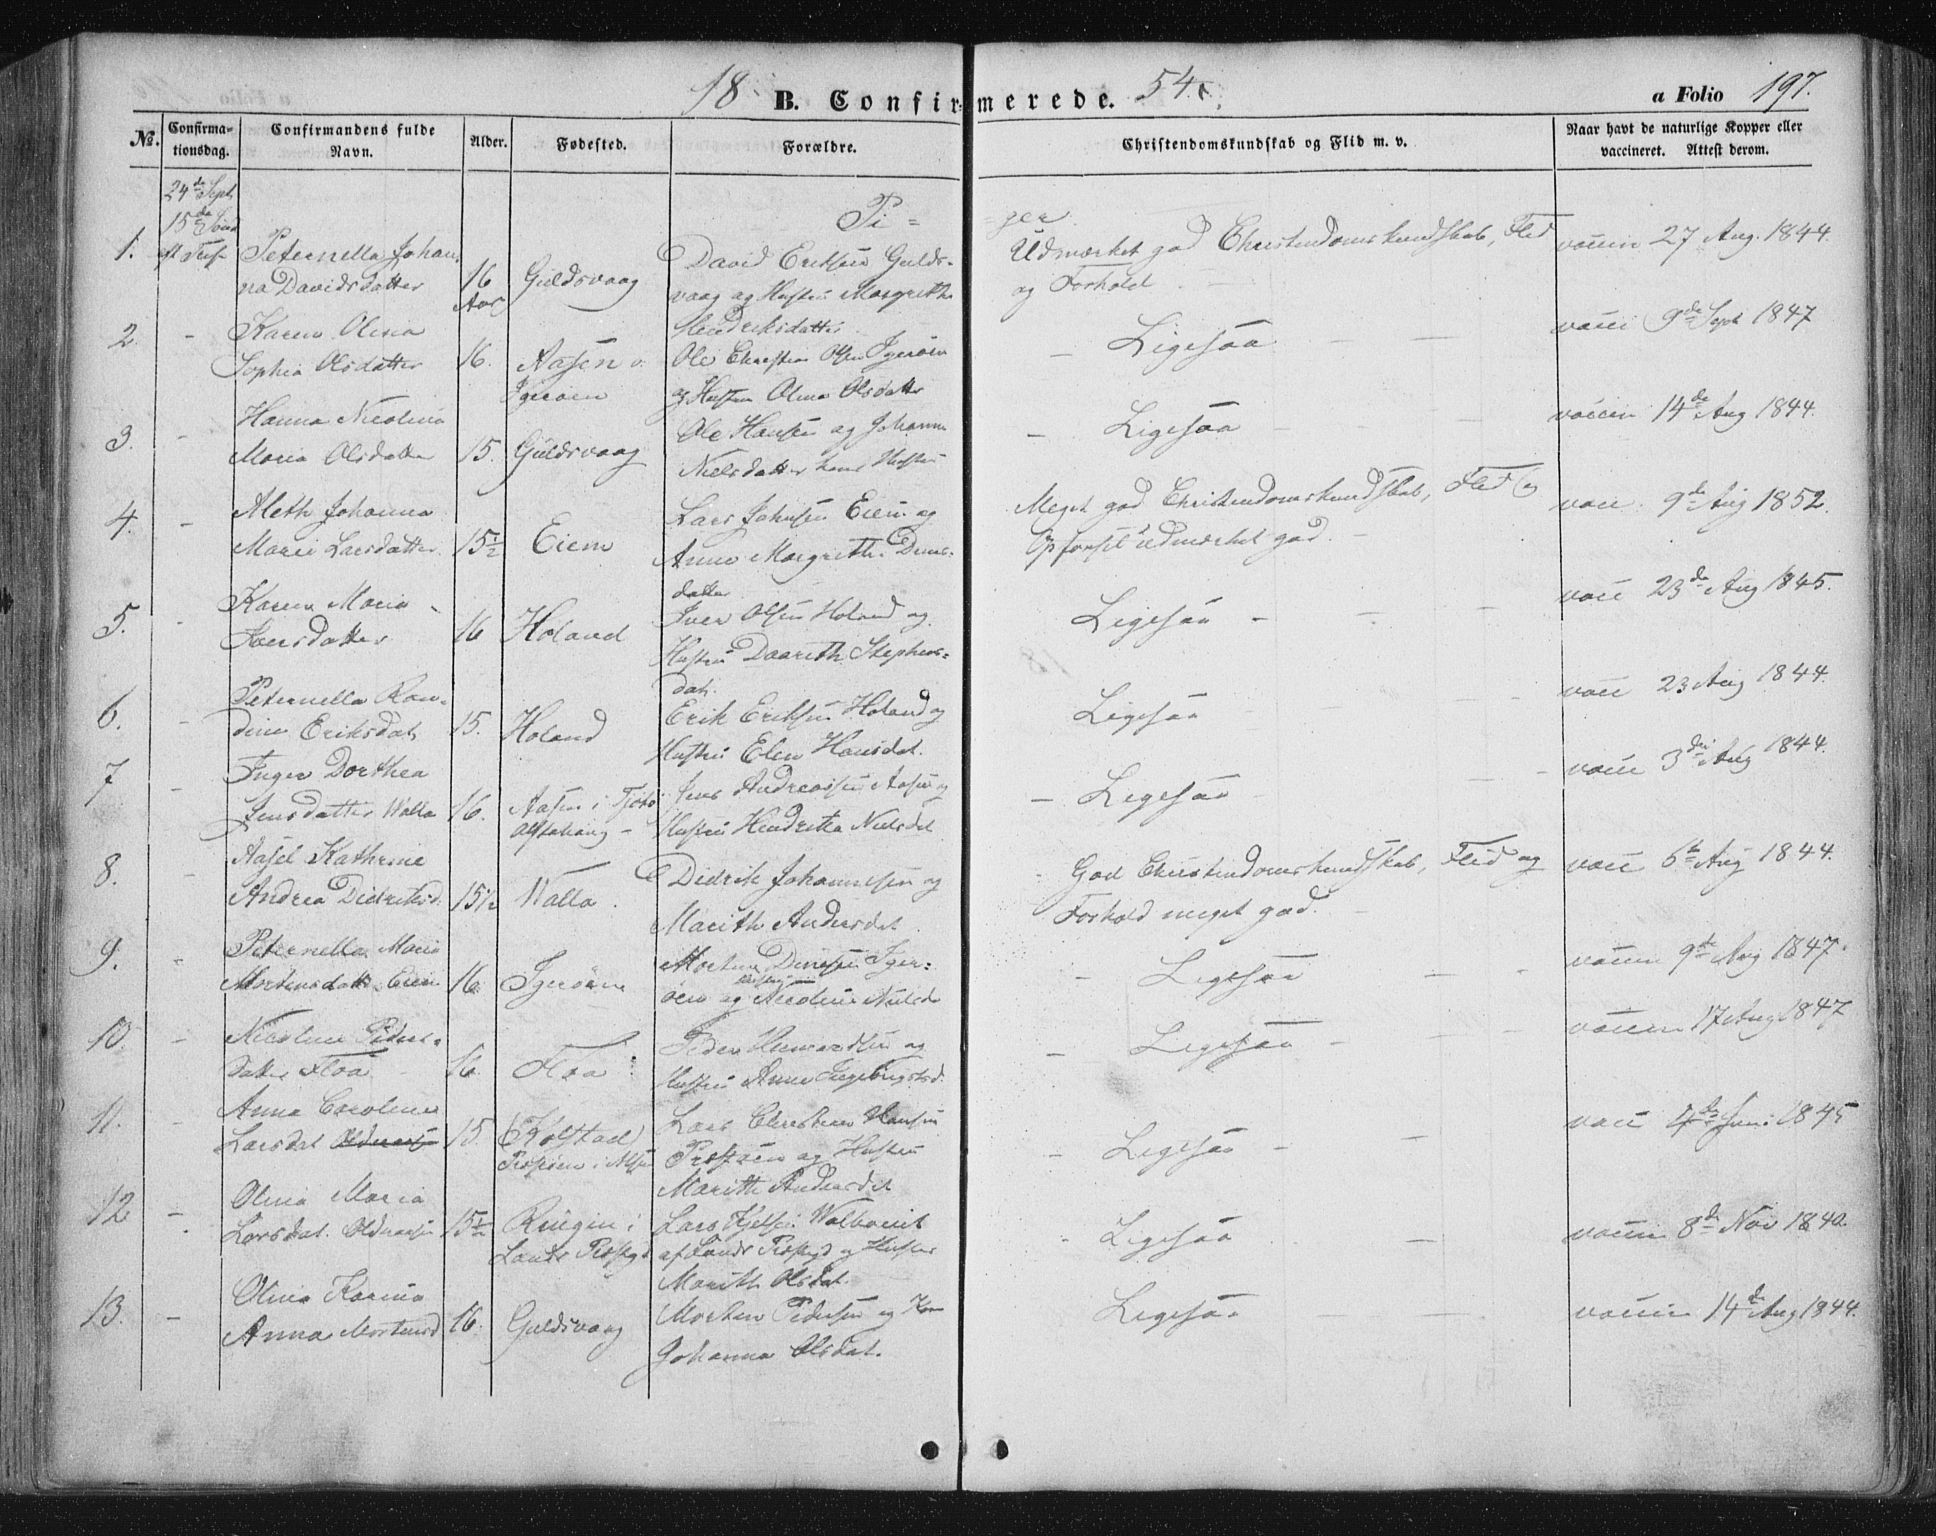 18 B. Confirmerede. 54. a Folio 197.
No. Confirmationsdag. Confirmandens fulde Navn. Alder. Fødested. Forældre. Christendomskundskab og Flid m. v. Naar havt de naturlige Kopper eller vaccineret. Attest derom.
24de Sept
15de Sønd
eft Tref
Pi = = ger
1. Peternella Johan-
na Davidsdatter
16 Aar
Guldsvaag
David Eriksen Gulds-
vaag og Hustru Margrethe
Hendriksdatter
Udmærket god Christendomskundskab, Flid
og Forhold
vaccin 27 Aug. 1844.
2. - Karen Olina
Sophia Olsdatter
16.
Aasen i
Igerøen
Ole Christian Olsen Igerøen
og Hustru Olina Olsdatter
- Ligesaa
vacci 9de Sept 1847
3. - Hanna Nicolina
Maria Olsdatter
15.
Guldsvaag
Ole Hansen og Johanna
Nielsdatter hans Hustru
- Ligesaa -
vaccin 14de Aug 1844.
4. - Aleth Johanna
Marie Larsdatter
15½
Eiem
Lars Johnsen Eiem og
Anne Margrethe Dines-
datter
Meget god Christendomskundskab, Flid og
Opførsel udmærket god. -
vacc. 9de Aug 1852.
5. - Karen Maria
Iversdatter
16
Holand
Iver Olsen Holand og
Hustru Daareth Stephens-
dat.
Ligesaa -
vacc 23de Aug 1845.
6. - Peternella Ran-
dine Eriksdat.
15.
Holand
Erik Eriksen Holand og
Hustru Elen Hansdat.
Ligesaa -
vacc 23 Aug 1844.
7 - Inger Dorthea
Jensdatter Walla
16.
Aasen i Tjøtø
Alstahaug -
Jens Andreassen Aasen og
Hustru Hendrikka Nielsdat
- Ligesaa -
vacc 3die Aug 1844.
8. Aasel Kathrine
Andrea Didriksd.
15½
Walla.
Didrik Johannesen og
Marith Andersdat.
God Christendomskundskab, Flid og
Forhold meget god. -
vacc 6te Aug 1844.
9. - Peternella Maria
Mortensdatt. Eiem
16
Igerøen
Morten Dinesen Iger=
øen og Hustru Nicoline Nielsd
- Ligesaa
vaccin 9de Aug 1847.
10. - Nicoline Peders-
datter Floa
16.
Floa
Peder og
Hustru Anne Ingebrigtsd.
- Ligesaa -
vaccin 17 Aug 1847
11. - Anna Caroline
Larsdat
15.
(Kolstad)
i Alsten
Lars Christian Hansen
og Hustru
Marith Andersdat
- Ligesaa -
vacc 4de Juni 1845
12 - Olina Maria
Larsdat.
15½
i
Præstgd
Lars
af Præstgd og Hustru
Marith Olsdat.
- Ligesaa
vaccin 8de Nov 1840.
13. - Olina Karina
Anna Mortensd
16.
Guldsvaag
Morten Pedersen og Kone
Johanna Olsdat.
Ligesaa -
vaccin 14de Aug 1844.